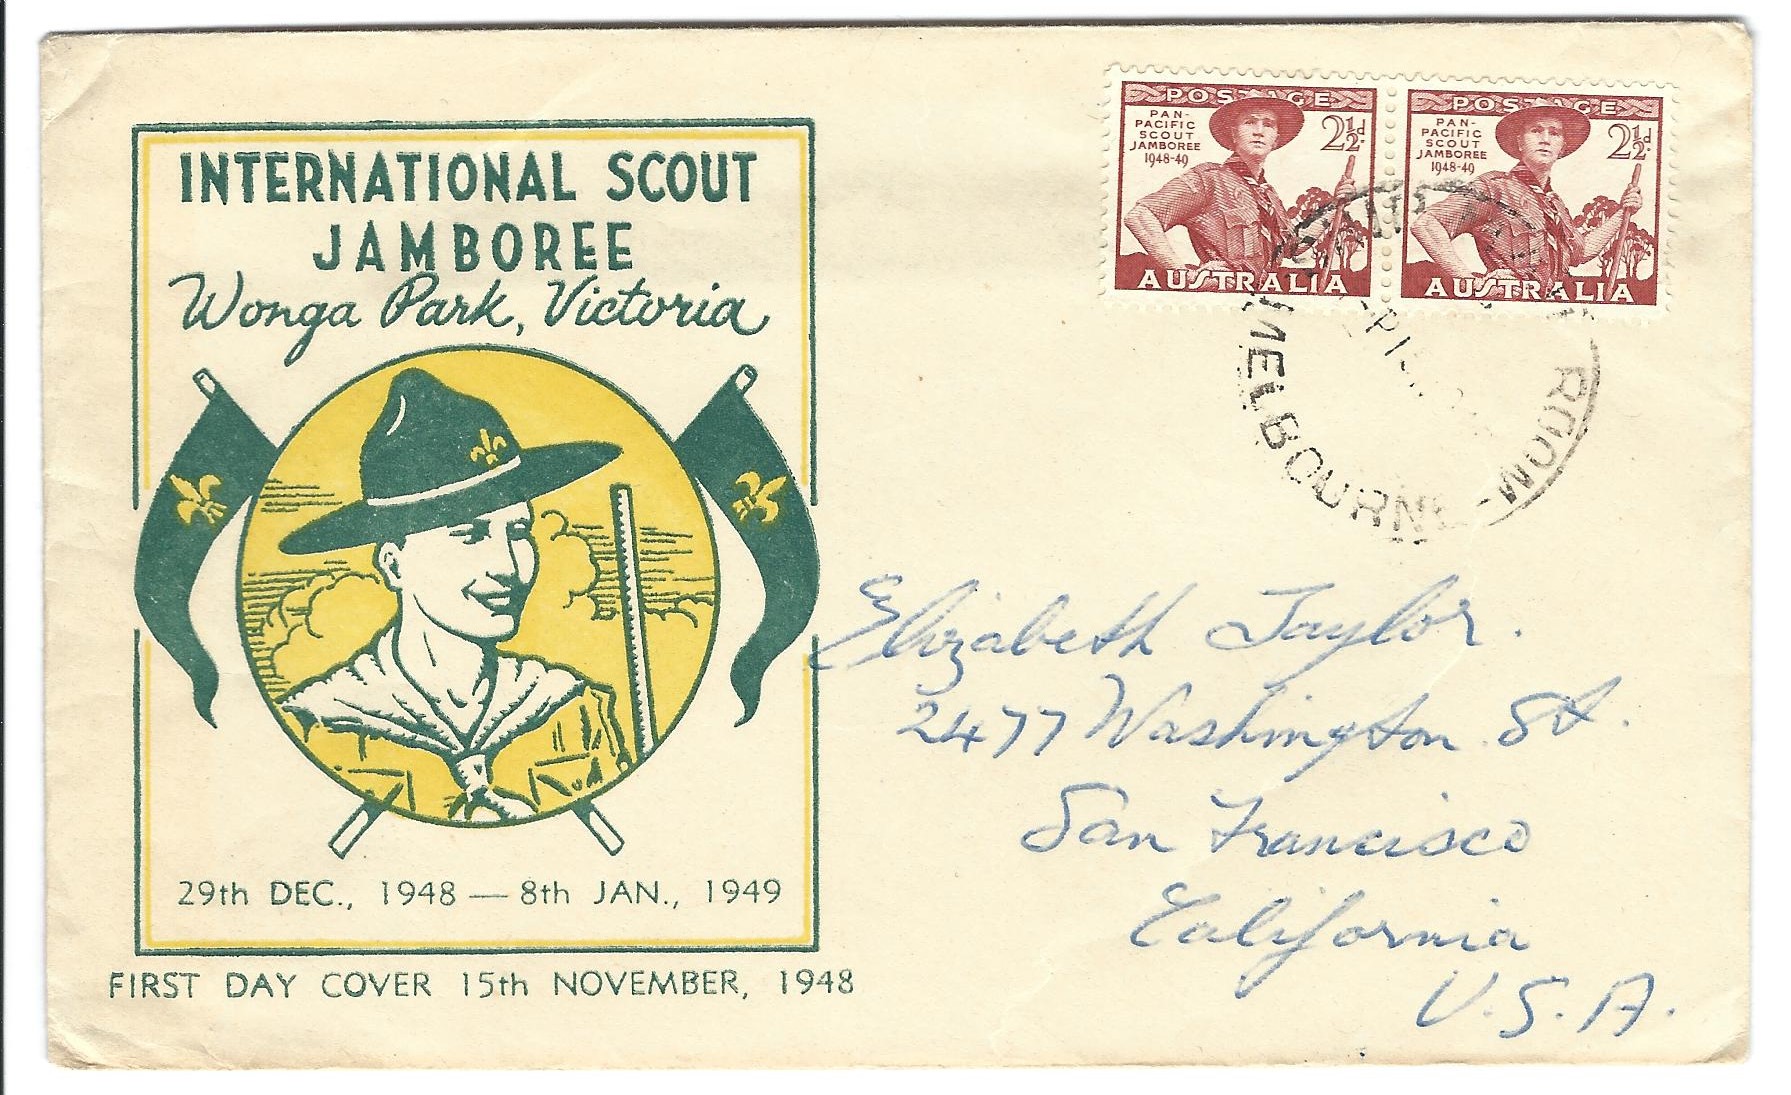 INTERNATIONAL SCOUT
JAMBOREE
Wonga Park, Victoria
29th DEC., 1948 — 8th JAN., 1949
FIRST DAY COVER 15th NOVEMBER, 1948
POSTAGE
PAN-
PACIFIC
SCOUT
JAMBOREE
1948-49
2½d.
AUSTRALIA
POSTAGE
PAN-
PACIFIC
SCOUT
JAMBOREE
1948-49
2½d.
AUSTRALIA
ROOM
MELBOURNE
Elizabeth Taylor.
2477 Washington St.
San Francisco
California
U.S.A.